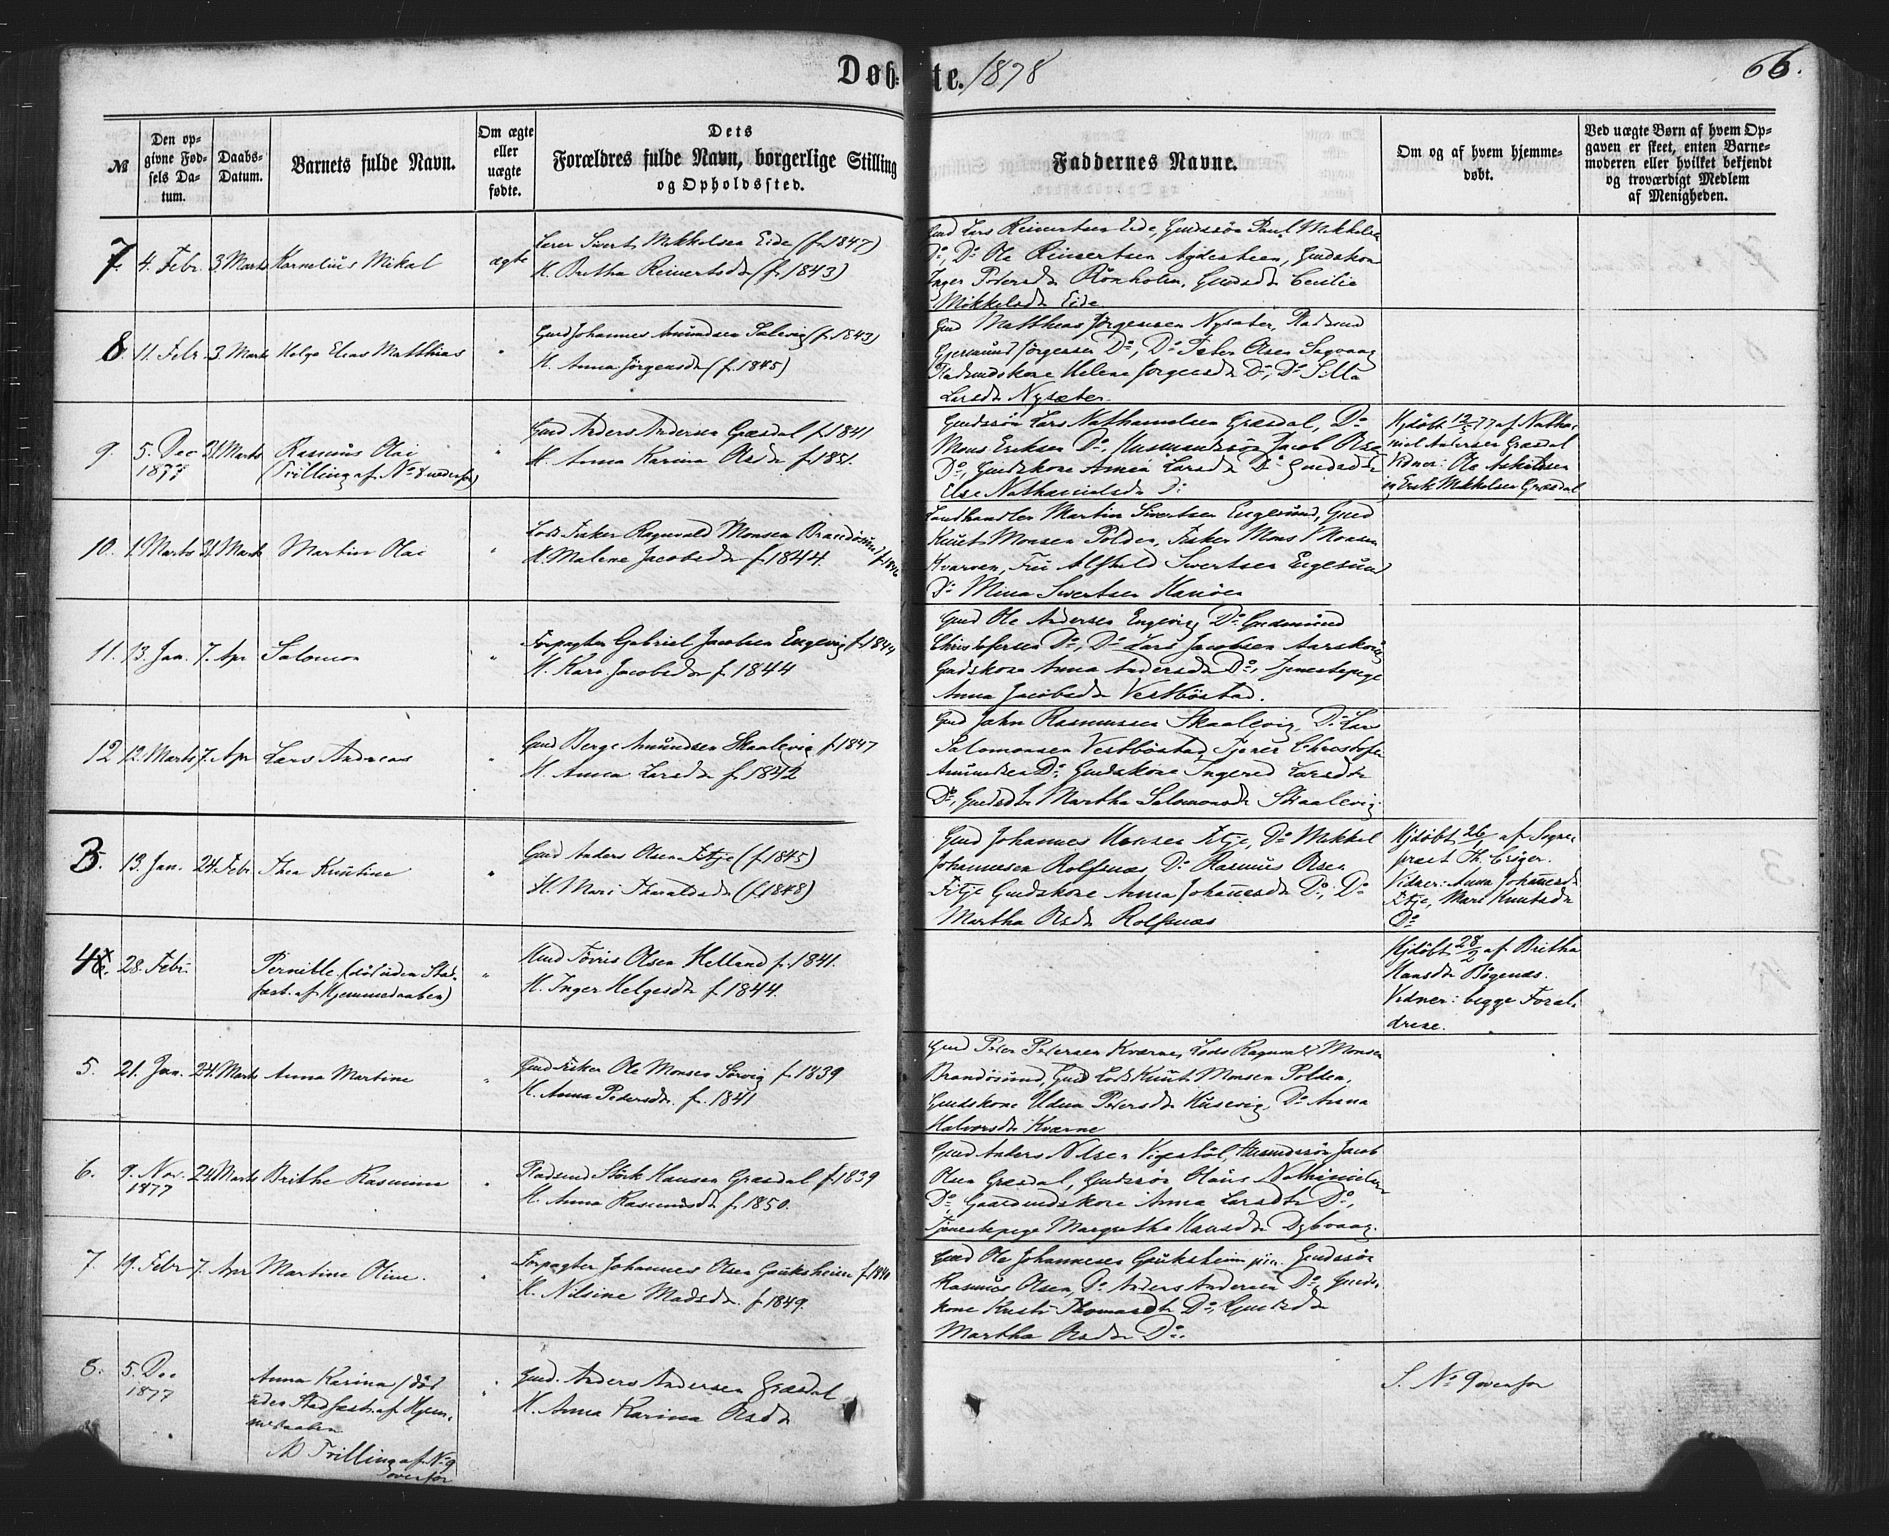 Døb-
te. 1878
66.
№
Den op-
givne Fød-
sels Da-
tum.
Daabs-
Datum.
Barnets fulde Navn.
Om ægte
eller
uægte
fødte.
Dets
Forældres fulde Navn, borgerlige Stilling
og Opholdssted.
Faddernes Navne.
Om og af hvem hjemme-
døbt.
Ved uægte Børn af hvem Op-
gaven er skeet, enten Barne-
moderen eller hvilket bekjendt
og troværdigt Medlem
af Menigheden.
7. 4. Febr. 3. Marts Kornelius Mikal ægte
Sivert Mikkelsen Eide (f. 1847)
H. Brithe Reinertsdr (f. 1843)
Gmd Lars Reinertsen Eide, Gmdssøn Paul Mikkelsen
Do, Do Ole Reinertsen Agdesteen, Gmdskon
Inger Petersdr Rønholm, Gmdsdr Cecilie
Mikkelsdr Eide
8. 11. Febr. 3. Marts Helge Elias Matthias "
Gmd Johannes Amundsen Salevig (f. 1843)
H. Anna Jørgensdr (f. 1845)
Gmd Matthias Jørgensen Nysæter, Pladsmd
Gjermund Jørgensen Do, Do Peter Olsen Sagvaag
Pladsmdskone Helene Jørgensdr Do, Do Silla
Larsdr Nysæter.
9. 5. Dec 1877 21. Marts Rasmus Olai
(Tvilling af No 8 nedenfor) "
Gmd Anders Andersen Græsdal f. 1841
H. Anna Karina Olsdr f. 1851.
Gmdssøn Lars Nathanielsen Græsdal, Do
Mons Eriksen Do, Husmandssøn Jacob Olsen
Do, Gmdskone Anna Larsdr Do Gmdsdtr
Else Nathanielsdr Do
Hjdøbt 12/5 77 af Natha-
niel Andersen Græsdal
Vidner: Ole Askildsen
og Erik Mikkelsen Græsdal
10. 1. Marts 21. Marts Martin Olai "
Lods Fisker Ragnvald Monsen Brandøsund f. 1846
H. Malene Jacobsdr f. 1844.
Landhandler Martin Sivertsen Engesund, Gmd
Knut Monsen Polden, Fisker Mons Monsen
Kvarven, Fru Alfhild Sivertsen Engesund
Do Mina Sivertsen Hanøen
11. 13. Jan. 7. Apr Salomon "
Forpagter Gabriel Jacobsen Engevig f. 1844
H. Kari Jacobsdr f. 1844
Gmd Ole Andersen Engevig, Do Gudmund
Christofersen Do, Do Lars Jacobsen Aarskoug
Gmdskone Anna Andersdr Do, Tjenestepige
Anna Jacobsdr Vestbøstad.
12 12. Marts 7. Apr Lars Andreas "
Gmd Berge Amundsen Skaalevig f. 1847
H. Anna Larsdr f. 1842
Gmd John Rasmussen Skaalevig, Do Lars
Salomonsen Vestbøstad, Tjener Christofer
Amundsen Do, Gmdskone Ingered Larsdtr
Do, Gmdsdtr Martha Salomonsdr Skaalevig.
3. 13. Jan. 24. Febr. Thea Kristine "
Gmd Anders Olsen Fitje (f. 1845)
H. Mari Tharaldsdr (f. 1848)
Gmd Johannes Hansen Fitje, Do Mikkel
Johannesen Rolfsnæs Do Rasmus Olsen
Fitje Gmdskone Anna Johannesdr Do, Do
Martha Olsdr Rolfsnæs
Hjdøbt 26/1 af Sogne-
præst Th. Crüger.
Vidner: Anna Johannesdr
Fitje, Mari Knutsdr
Do
4. 28. Febr. Pernille (død uden Stad-
fæst. af Hjemmedaaben) "
Hmd Tøris Olsen Helland f. 1841.
H. Inger Helgesdr f. 1844.
Hjdøbt 28/2 af Britha
Hansdr Bøgenæs.
Vidner: begge Foræl-
drene.
5. 21. Jan. 24. Marts Anna Martine "
Gmd Fisker Ole Monsen Sørvig f. 1839
H. Anna Pedersdr. f. 1841
Gmd Peter Petersen Kværne, Lods Ragnvald Monsen
Brandøsund, Gmd Lods Knut Monsen Polden,
Gmdskone Udna Petersdr Husevig, Do Anna
Halvorsdr Kværne
6. 9. Nov. 1877 24. Marts Brithe Rasmine "
Pladsmd Størk Hansen Græsdal f. 1839
H. Anna Rasmusdr f. 1850.
Gmd Anders Nilsen Vigestøl, Husmdssøn Jacob
Olsen Græsdal, Gmdssøn Olaus Nathanielsen
Do, Gaardmdskone Anna Larsdtr Do,
Tjenestepige Margrethe Hansdr Dybvaag.
7. 19. Febr 7. Apr Martine Oline. "
Forpagter Johannes Olsen Gauksheim f. 1846
H. Nilsine Madsdr. f. 1849.
Gmd Ole Johannesen Gauksheim, Gmdssøn
Rasmus Olsen, Do Anders Andersen Do, Gmds-
kone Kristi Thomasdtr Do, Gmdsdr
Martha Olsdr Do.
8. 5. Dec 1877 Anna Karina (død
uden Stadfæst. af Hjem-
medaaben
Tvilling af No 9
ovenfor "
Gmd. Anders Andersen Græsdal
H. Anna Karina Olsdr
S. No 9 ovenfor